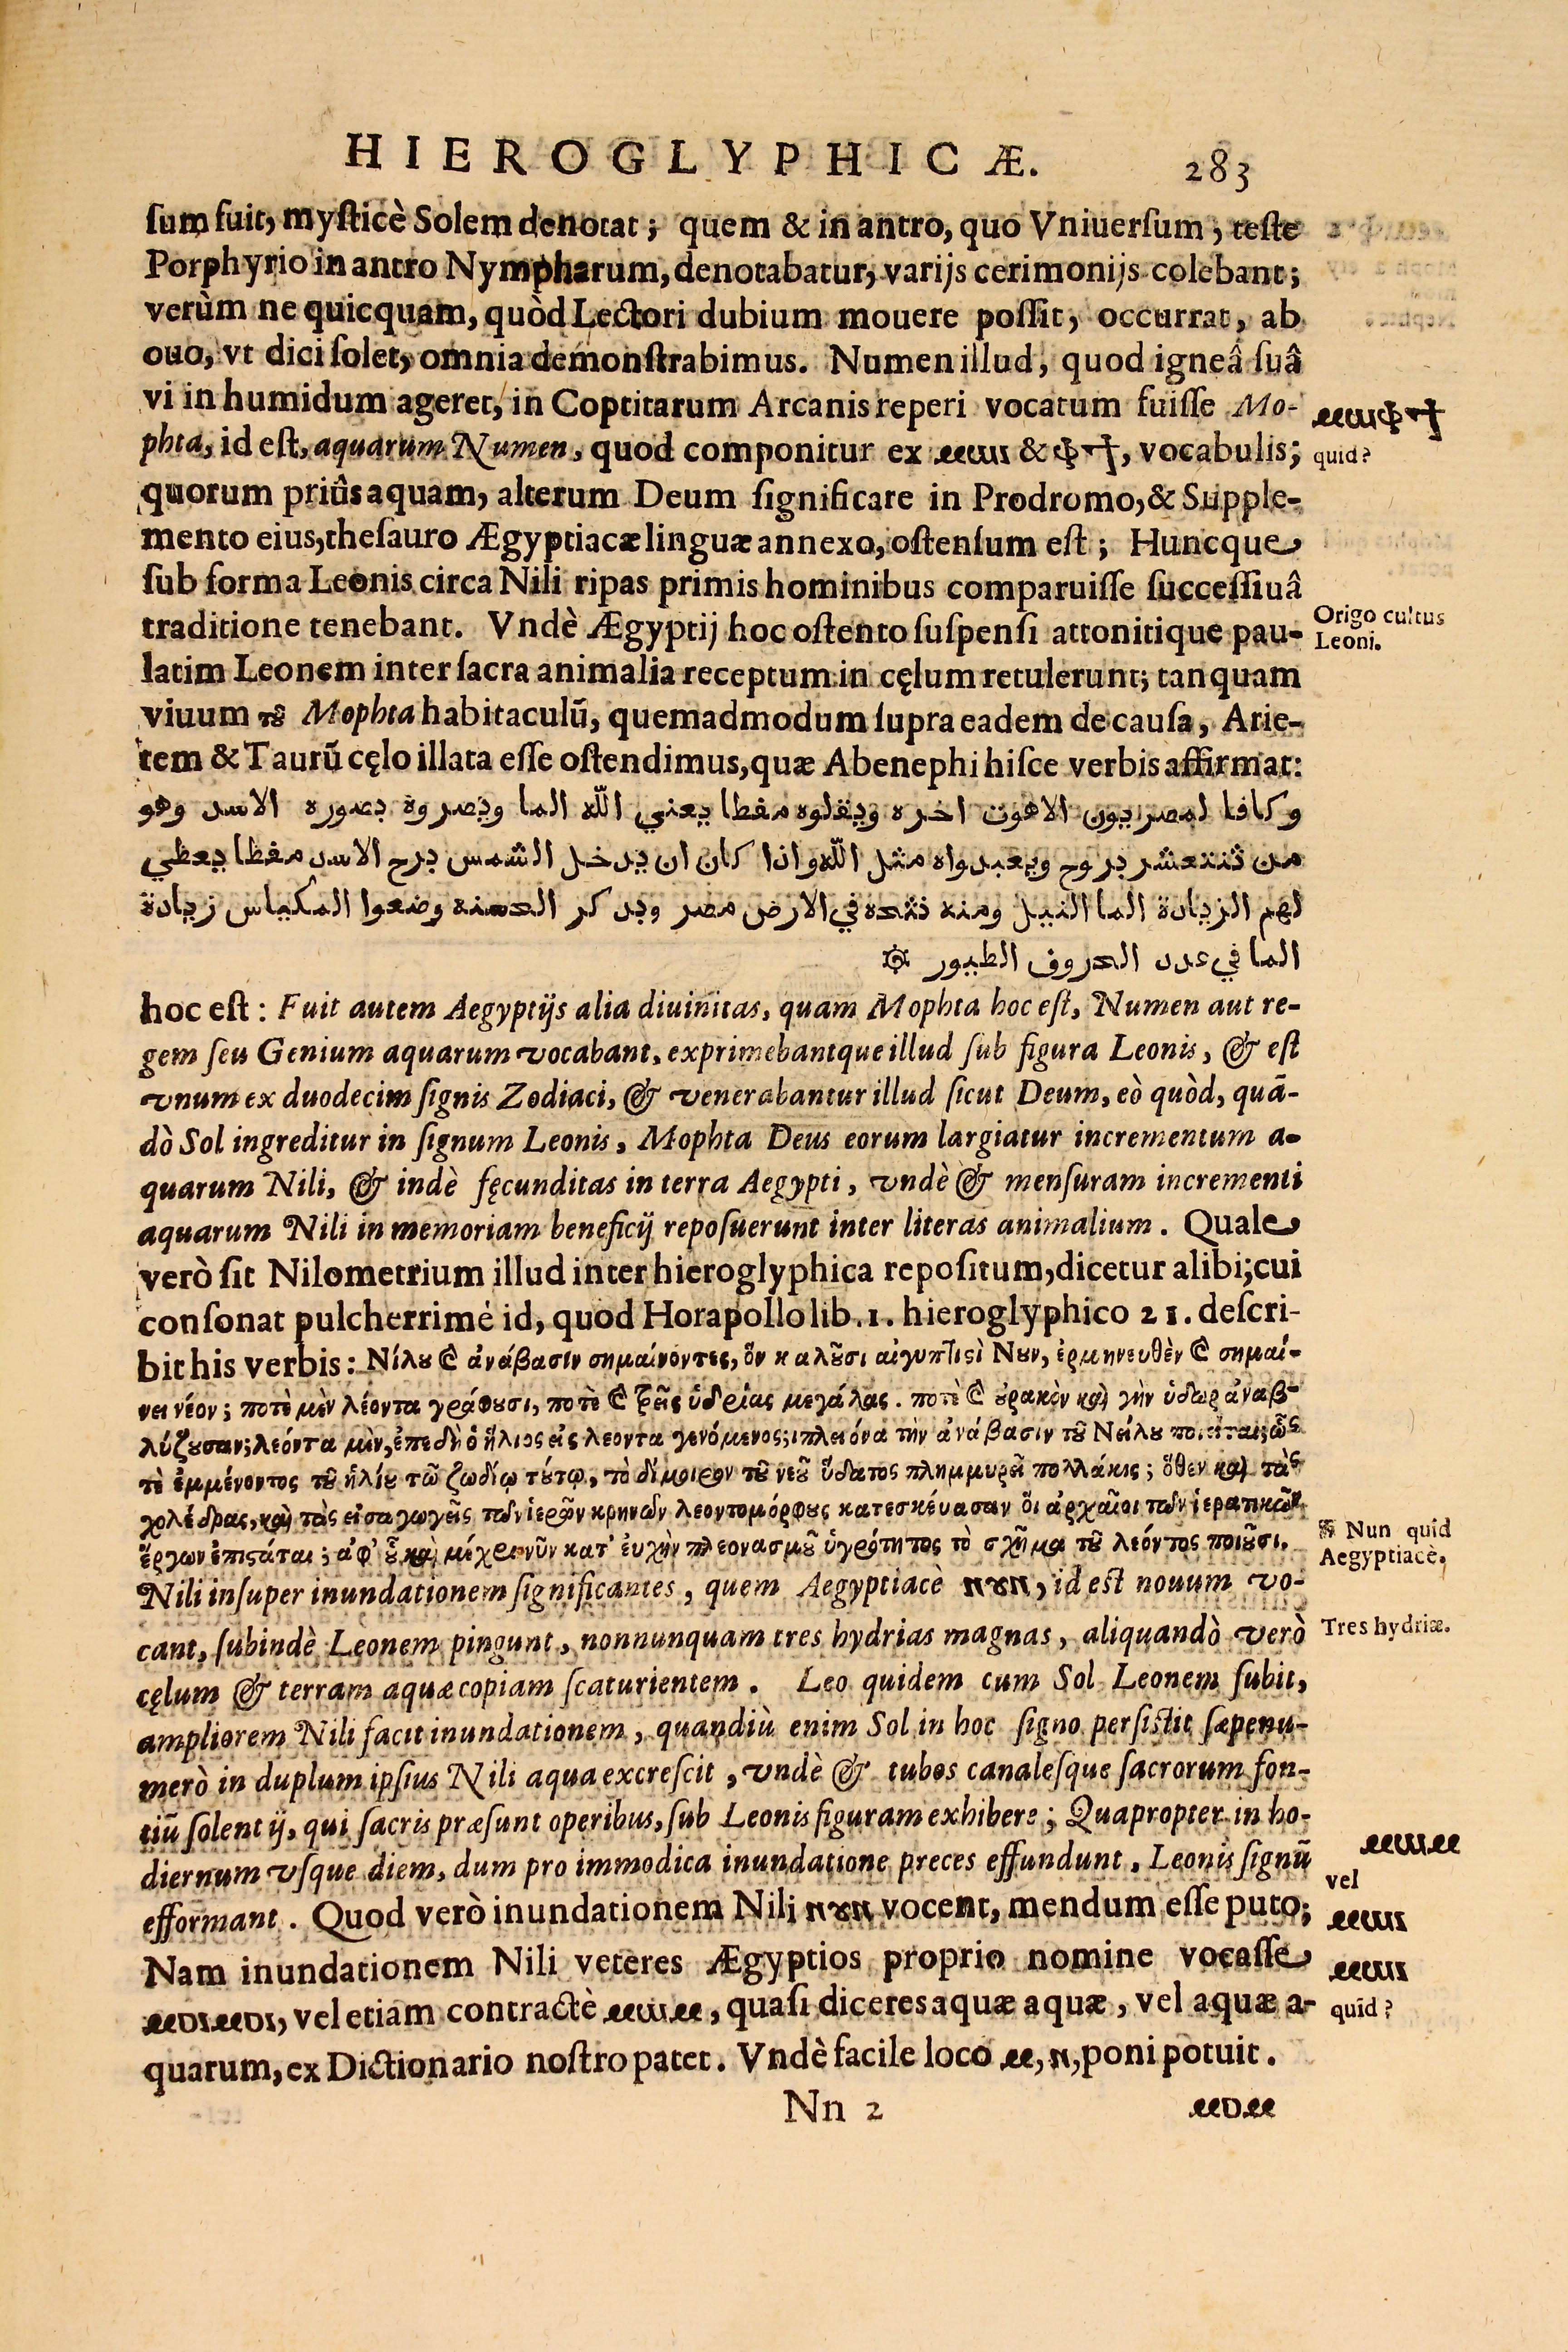 HIEROGLYPHICÆ. 283
ſum fuit, myſticè Solem denotat; quem & in antro, quo Vniuerſum, teſte
Porphyrio in antro Nympharum, denotabatur, varijs cerimonijs colebant;
verùm ne quicquam, quòd Lectori dubium mouere poſſit, occurrat, ab
ouo, vt dici ſolet, omnia demonſtrabimus. Numen illud, quod igneâ ſuâ
vi in humidum ageret, in Coptitarum Arcanis reperi vocatum fuiſſe Mo-
phta, id eſt, aquarum Numen, quod componitur ex ⲙⲱⲟⲩ & ⲫϯ, vocabulis;
ⲙⲱⲟⲩⲫϯ
quid?
quorum priùs aquam, alterum Deum ſignificare in Prodromo, & Supple-
mento eius, theſauro Ægyptiacæ linguæ annexo, oſtenſum eſt; Huncque
ſub forma Leonis circa Nili ripas primis hominibus comparuiſſe ſucceſſiuâ
traditione tenebant. Vndè Ægyptij hoc oſtento ſuſpenſi attonitique pau-
Origo cultus
Leoni.
latim Leonem inter ſacra animalia receptum in cęlum retulerunt; tanquam
viuum τȣ͂ Mophta habitaculũ, quemadmodum ſupra eadem de cauſa, Arie-
tem & Taurũ cęlo illata eſſe oſtendimus, quæ Abenephi hiſce verbis affirmat:
وكافا لمصريون الاهوت اخره ويقلوه مفطا يعني الله الما ويصروة بصوره الاسد وهو
من ثنتعشر بروح ويعبدواه مثل الله واذا كان ان يدخل الشمس برح الاسد مفطا يعطي
لهم الزيادة الما النيل ومنه نتحه في الارض مصر وبد كر الحسنه وضعوا المكياس زيادة
الما في عدد الحروف الطيور
hoc eſt: Fuit autem Aegyptijs alia diuinitas, quam Mophta hoc eſt, Numen aut re-
gem ſeu Genium aquarum vocabant, exprimebantque illud ſub figura Leonis, & eſt
vnum ex duodecim ſignis Zodiaci, & venerabantur illud ſicut Deum, eò quòd, quā-
dò Sol ingreditur in ſignum Leonis, Mophta Deus eorum largiatur incrementum a-
quarum Nili, & indè fęcunditas in terra Aegypti, vndè & menſuram incrementi
aquarum Nili in memoriam beneficij repoſuerunt inter literas animalium. Quale
verò ſit Nilometrium illud inter hieroglyphica repoſitum, dicetur alibi; cui
conſonat pulcherrimè id, quod Horapollo lib. 1. hieroglyphico 21. deſcri-
bit his verbis: Νίλȣ ϗ ἀνάβασιν σημαίνοντες, ὅν καλȣ͂σι αἰγυπτιςὶ Νȣν, ἑρμηνευθὲν ϗ σημαί-
νει νέον; ποτὲ μὲν λέοντα γράφουσι, ποτὲ ϗ τρεῖς ὑδρίας μεγάλας. ποτὲ ϗ ȣρακὸν καὶ γὴν ὑδωρ ἀναβ-
λύζȣσαν; λεόντα μὲν, ἐπεδὴ ὁ ἥλιος εἰς λεοντα γενόμενος; ιπλειόνα τὴν ἀνάβασιν τȣ͂ Νείλȣ ποιεῖται; ὥς
τὲ ἐμμένοντος τȣ͂ ἡλίȣ τῶ ζωδίῳ τȣ́τῳ, τὸ δίμοιρον τȣ͂ νεȣ͂ ὕδατος πλημμυρεῖ πολλάκις; ὅθεν καὶ τὰς
χολέδρας, καὶ τὰς εἰσαγωγεῖς τῶν ἱερῶν κρηνῶν λεοντομόρφȣς κατεσκέυασαν ὅι ἀρχαῖοι τῶν ἱερατικῶν
ἔργων ἐπιςάται; ἀφ' ȣ͗ καὶ μέχρι νῦν κατ' ἐυχὴν πλεονασμȣ͂ ὑγρότητος τὸ σχῆμα τȣ͂ λεόντος ποιȣ͂σι.
Nun quid
Aegyptiacè.
Nili inſuper inundationem ſignificantes, quem Aegyptiacè ⲛⲟⲩⲛ, id eſt nouum vo-
cant, ſubindè Leonem pingunt, nonnunquam tres hydrias magnas, aliquandò verò
Tres hydriæ.
cęlum & terram aquæ copiam ſcaturientem. Leo quidem cum Sol Leonem ſubit,
ampliorem Nili facit inundationem, quandiù enim Sol in hoc ſigno perſiſtit ſæpenu-
merò in duplum ipſius Nili aqua excreſcit, vndè & tubos canaleſque ſacrorum fon-
tiũ ſolent ij, qui ſacris præſunt operibus, ſub Leonis figuram exhibere; Quapropter in ho-
diernum vſque diem, dum pro immodica inundatione preces effundunt, Leonis ſignũ
ⲙⲱⲙ
vel
efformant. Quod verò inundationem Nili ⲛⲟⲩⲛ vocent, mendum eſſe puto;
ⲙⲱⲓ
Nam inundationem Nili veteres Ægyptios proprio nomine vocaſſe
ⲙⲱⲓ
ⲙⲟⲓⲙⲟⲓ, vel etiam contractè ⲙⲱⲙ, quaſi diceres aquæ aquæ, vel aquæ a-
quid?
quarum, ex Dictionario noſtro patet. Vndè facile loco ⲙ, ⲛ, poni potuit.
Nn 2 ⲙⲟⲙ